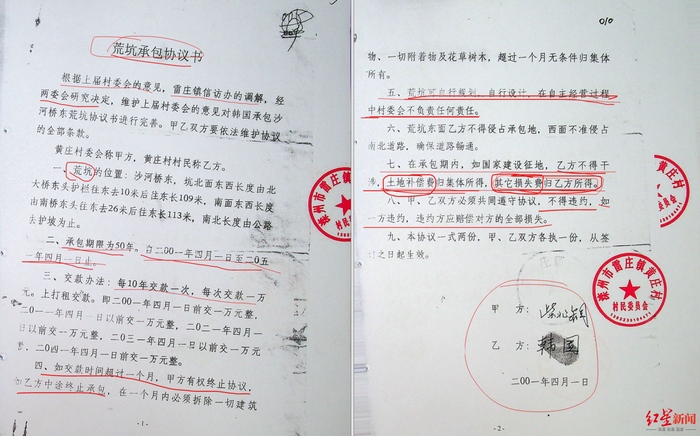 荒坑承包协议书
根据上届村委会的意见，雷庄镇信访办的调解，经
两委会研究决定，维护上届村委会的意见对韩国承包沙
河桥东荒坑协议书进行完善。甲乙双方要依法维护协议
的全部条款。
黄庄村委会称甲方，黄庄村村民称乙方。
一、荒坑的位置：沙河桥东，坑北面东西长度由北
大桥东头护栏往东去10米后往东长109米，南面东西长度
由南桥东头往东去26米后往东长113米，南北长度由公路
去护坡为止。
二、承包期限为50年。自二00一年四月一日至二0五
一年四月一日止。
三、交款办法：每10年交款一次，每次交款一万
元。上打租交款。即二00一年四月一日前交一万元整，
二0一一年四月一日以前交一万元整，二0二一年四月一
日以前交一万元整，二0三一年四月一日以前交一万元
整，二0四一年四月一日前交一万元整。
四、如交款时间超过一个月，甲方有权终止协议，
如乙方中途终止承包，在一个月内必须拆除一切建筑
-1-
滦州市雷庄镇黄庄村
村民委员会
010
物、一切附着物及花草树木，超过一个月无条件归集体
所有。
五、荒坑可自行规划，自行设计，在自主经营过程
中村委会不负责任何责任。
六、荒坑东面乙方不得侵占承包地，西面不准侵占
南北道路，确保道路畅通。
七、在承包期内，如国家建设征地，乙方不得干
涉，土地补偿费归集体所得，其它损失费归乙方所得。
八、甲、乙双方必须共同遵守协议，不得违约，如
一方违约，违约方应赔偿对方的全部损失。
九、本协议一式两份，甲、乙双方各执一份，从签
订之日起生效。
甲方：
乙方：韩国
二00一年四月一日
-2-
滦州市雷庄镇黄庄村
村民委员会
红星新闻